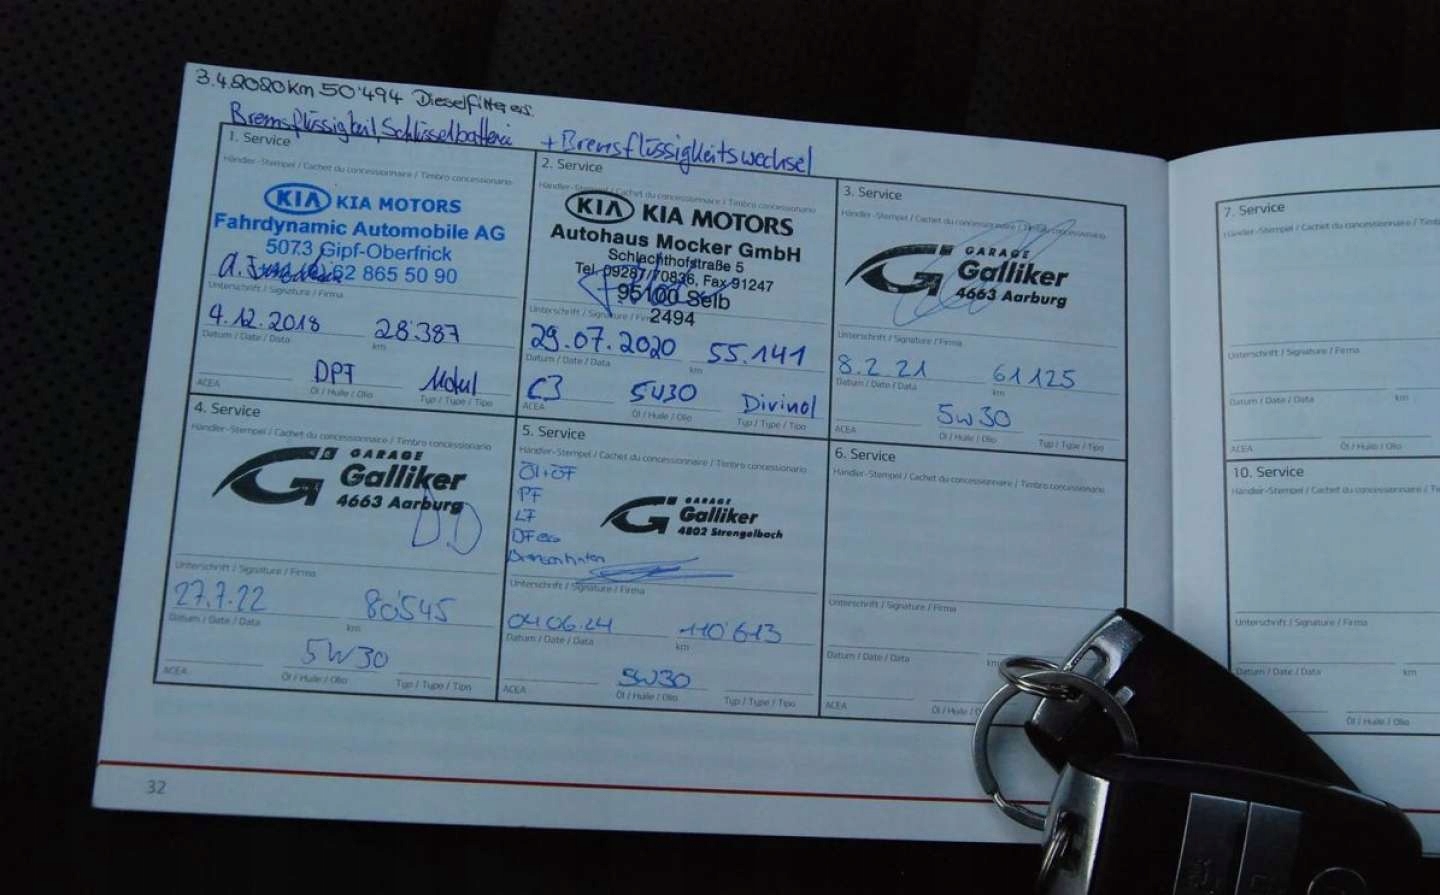 3.4.2020 km 50'494 Dieselfilter ers.
Bremsflüssigkeit, Schlüsselbatterie
+ Bremsflüssigkeitswechsel
1. Service
Händler-Stempel / Cachet du concessionnaire / Timbro concessionario
KIA KIA MOTORS
Fahrdynamic Automobile AG
5073 Gipf-Oberfrick
62 865 50 90
Unterschrift / Signature / Firma
4.12.2018 28'387
Datum / Date / Data km
DPF Motul
ACEA Öl / Huile / Olio Typ / Type / Tipo
2. Service
Händler-Stempel / Cachet du concessionnaire / Timbro concessionario
KIA KIA MOTORS
Autohaus Mocker GmbH
Schlachthofstraße 5
Tel. 09287/70836, Fax 91247
95100 Selb
2494
Unterschrift / Signature / Firma
29.07.2020 55.141
Datum / Date / Data km
C3 5W30 Divinol
ACEA Öl / Huile / Olio Typ / Type / Tipo
3. Service
Händler-Stempel / Cachet du concessionnaire / Timbro concessionario
GARAGE
Galliker
4663 Aarburg
Unterschrift / Signature / Firma
8.2.21 61125
Datum / Date / Data km
5W30
ACEA Öl / Huile / Olio Typ / Type / Tipo
4. Service
Händler-Stempel / Cachet du concessionnaire / Timbro concessionario
GARAGE
Galliker
4663 Aarburg
Unterschrift / Signature / Firma
27.7.22 80'545
Datum / Date / Data km
5W30
ACEA Öl / Huile / Olio Typ / Type / Tipo
5. Service
Händler-Stempel / Cachet du concessionnaire / Timbro concessionario
Öl+ÖF
PF
LF
DF
GARAGE
Galliker
4802 Strengelbach
Unterschrift / Signature / Firma
04.06.24 110'613
Datum / Date / Data km
5W30
ACEA Öl / Huile / Olio Typ / Type / Tipo
6. Service
Händler-Stempel / Cachet du concessionnaire / Timbro concessionario
Unterschrift / Signature / Firma
Datum / Date / Data km
ACEA Öl / Huile / O
32
7. Service
Händler-Stempel / Cachet du concessionnaire / T
Unterschrift / Signature / Firma
Datum / Date / Data km
ACEA Öl / Huile / Olio
10. Service
Händler-Stempel / Cachet du concessionnaire / Ti
Unterschrift / Signature / Firma
Datum / Date / Data km
ACEA Öl / Huile / Olio